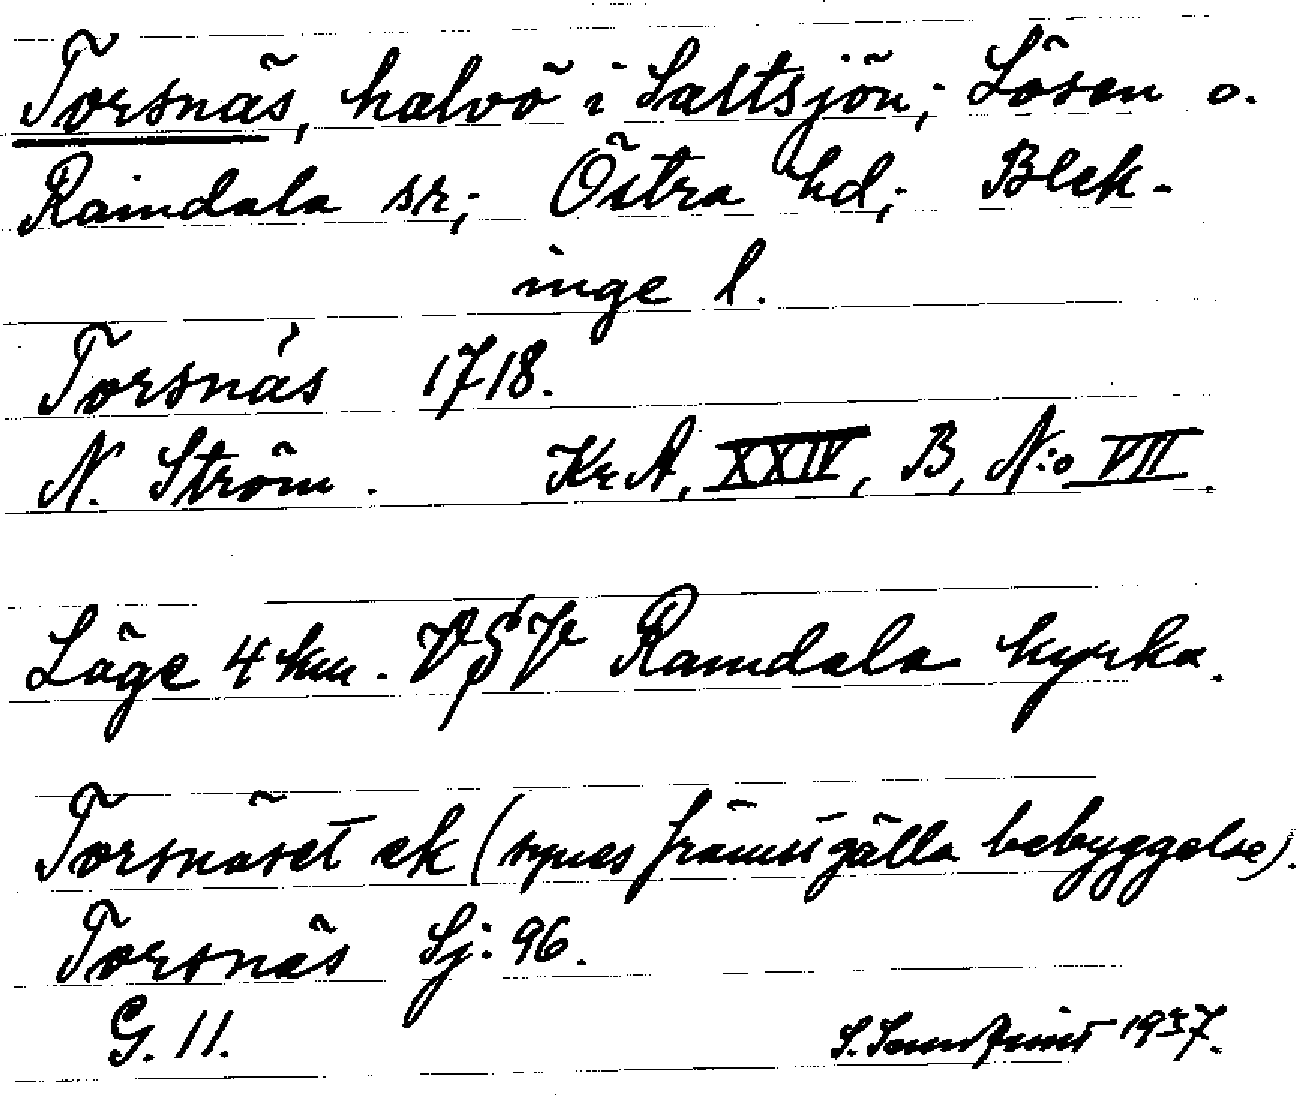 Torsnäs, halvö i Saltsjön; Lösen o.
Ramdala sr; Östra hd; Blek-
inge l.
Torsnäs 1718.
N. Ström. KrA, XXIV, B, N:o VII.
Läge 4 km. VSV Ramdala kyrka.
Torsnäset ek (synes främst gälla bebyggelse).
Torsnäs Sj: 96.
G. 11. S. 1937.